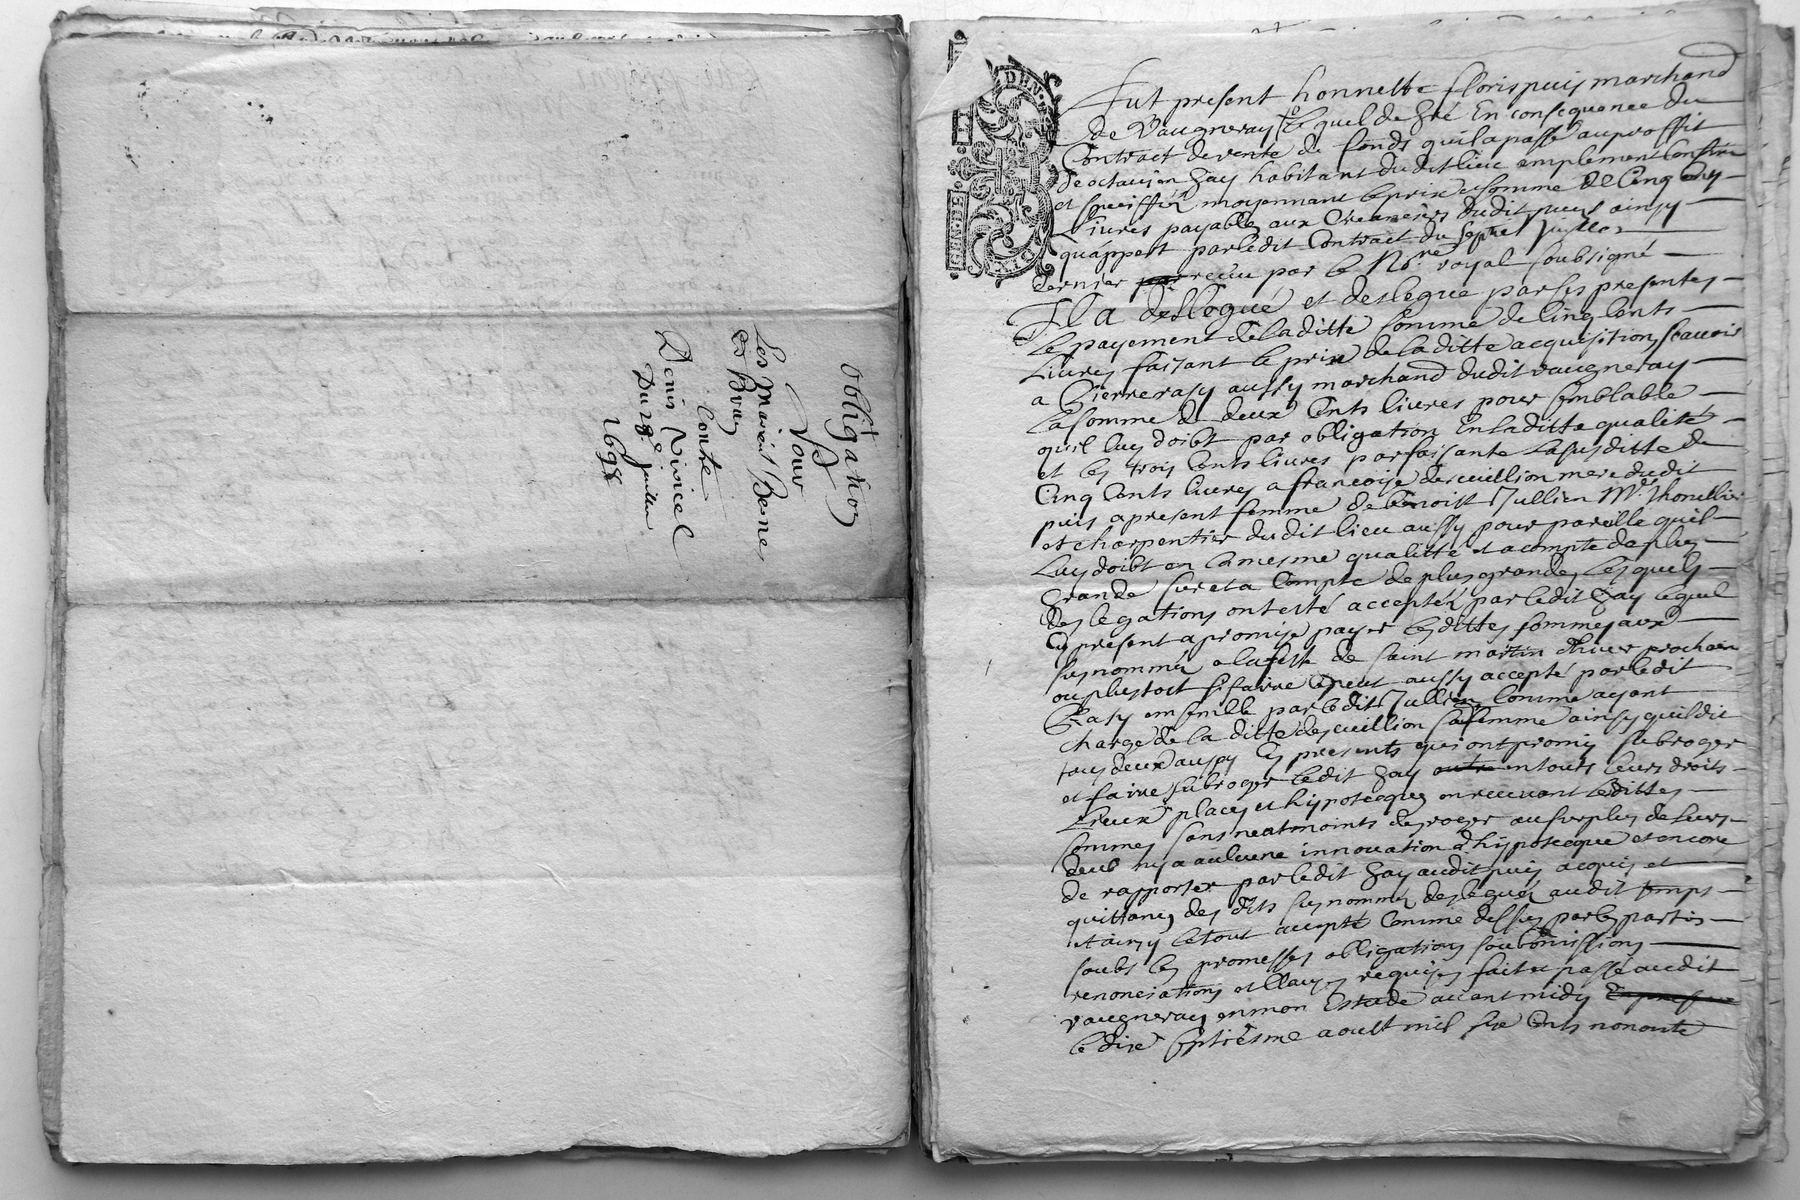 obligation
Pour
Les Mariés Besne
et Bruy
Contre
Denis Viricel
Du 28e juillet
1698
Fut present honneste floris puis marchand
de Vaugneray lequel de gré En consequence du
Contract de vente de fonds quil a passé au proffit
de octavien Gay habitant dudit lieu amplement Confiné
et speciffié moyennant le prix et somme de Cinq Cents
Livres payables aux Creanciers dudit puis ainsy
quappert par ledit Contract du septe Juillet
dernier receu par le Nore royal soubsigné
Il a deslegué et deslegue par ses presentes
Le payement de laditte somme de Cinq Cents
Livres faisant le prix de laditte acquisition, scavoir
a Pierre rasy aussy marchand dudit vaugneray
La somme de deux Cents livres pour semblable
quil luy doibt par obligation En laditte qualité
et les trois Cents livres parfaisante La susditte de
Cinq Cents livres a francoise descuillion mere dudit
puis a present femme de benoist Jullien Mre thonellier
et charpentier dudit lieu aussy pour pareille quil
Luy doibt en la mesme qualitté et a compte de plus
grande sur et a Compte de plus grande, Lesquels
deslegations ont esté acceptéés par ledit Gay lequel
Cy present a promis payer lesdittes sommes aux
susnommés a la feste de saint martin dhiver prochain
ou plustost si faire se peut aussy accepté par ledit
Rasy ensemble par ledit Jullien Comme ayant
charge de la ditte descuillion sa femme ainsy quil dit
tous deux aussy Cy presents qui ont promis subroger
et faire subroger ledit Gay en touts leurs droits
Lieux places et hypotecques en recevant lesdittes
sommes sans neatmoints desroger au surplus de leurs
deub ny a aulcune innovation dhypotecque et encore
de rapporter par ledit Gay audit puis acquis et
quittances des dits susnommés deslegués audit temps
et ainsy le tout accepté Comme dessus par les parties
soubs les promesses obligations soubmissions
renonciations et Clauses requises fait et passé audit
vaugneray en mon Estude avant midy
le dix septiesme aoust mil six Cents nonante